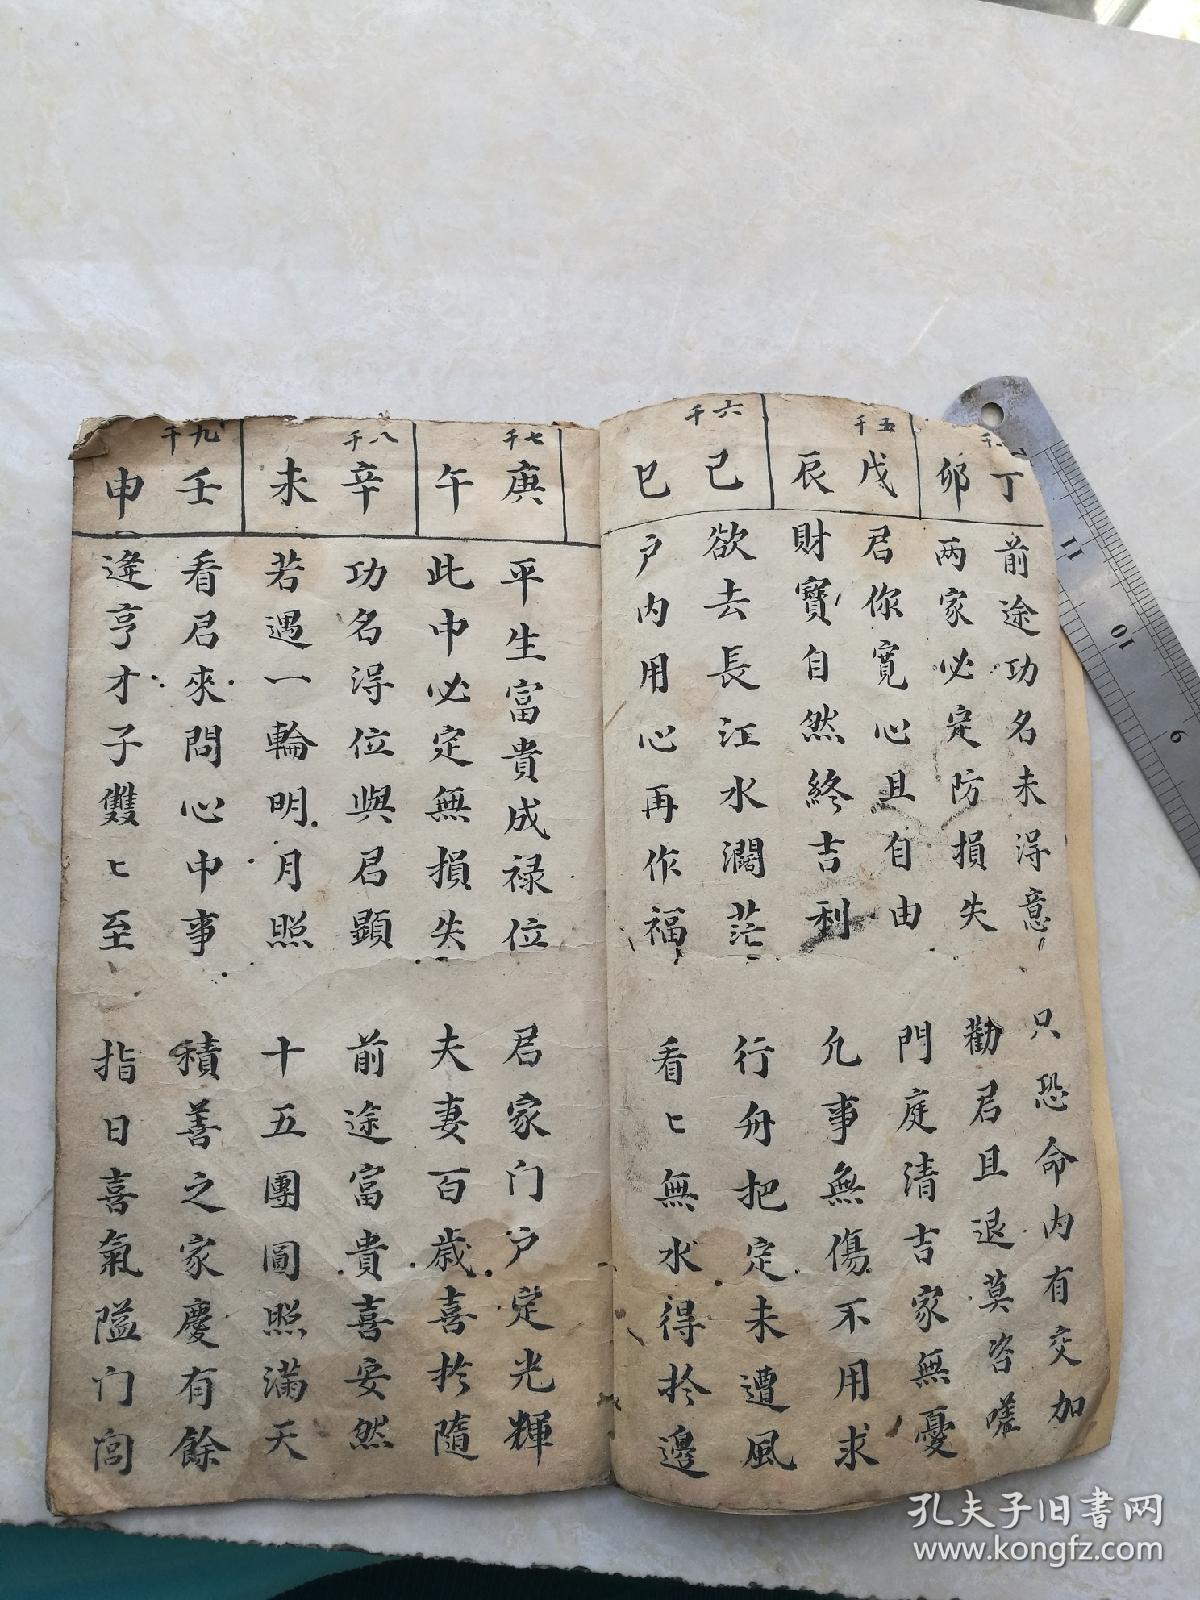 丁
卯
前途功名未淂意
只恐命内有交加
两家必定防損失
勸君且退莫咨嗟
五千
戊
辰
君你寬心且自由
門庭清吉家無憂
財寶自然終吉利
凢事無傷不用求
六千
己
巳
欲去長江水濶茫
行舟把定未遭風
戶内用心再作福
看匕無水得扵邊
七千
庚
午
平生富貴成禄位
君家门戶定光輝
此中必定無損失
夫妻百歲喜扵隨
八千
辛
未
功名淂位與君顯
前途富貴喜安然
若遇一輪明月照
十五團圓照滿天
九千
壬
申
看君來問心中事
積善之家慶有餘
逢亨才子雙匕至
指日喜氣隘门闾
孔夫子旧書网
www.kongfz.com
11
10
9